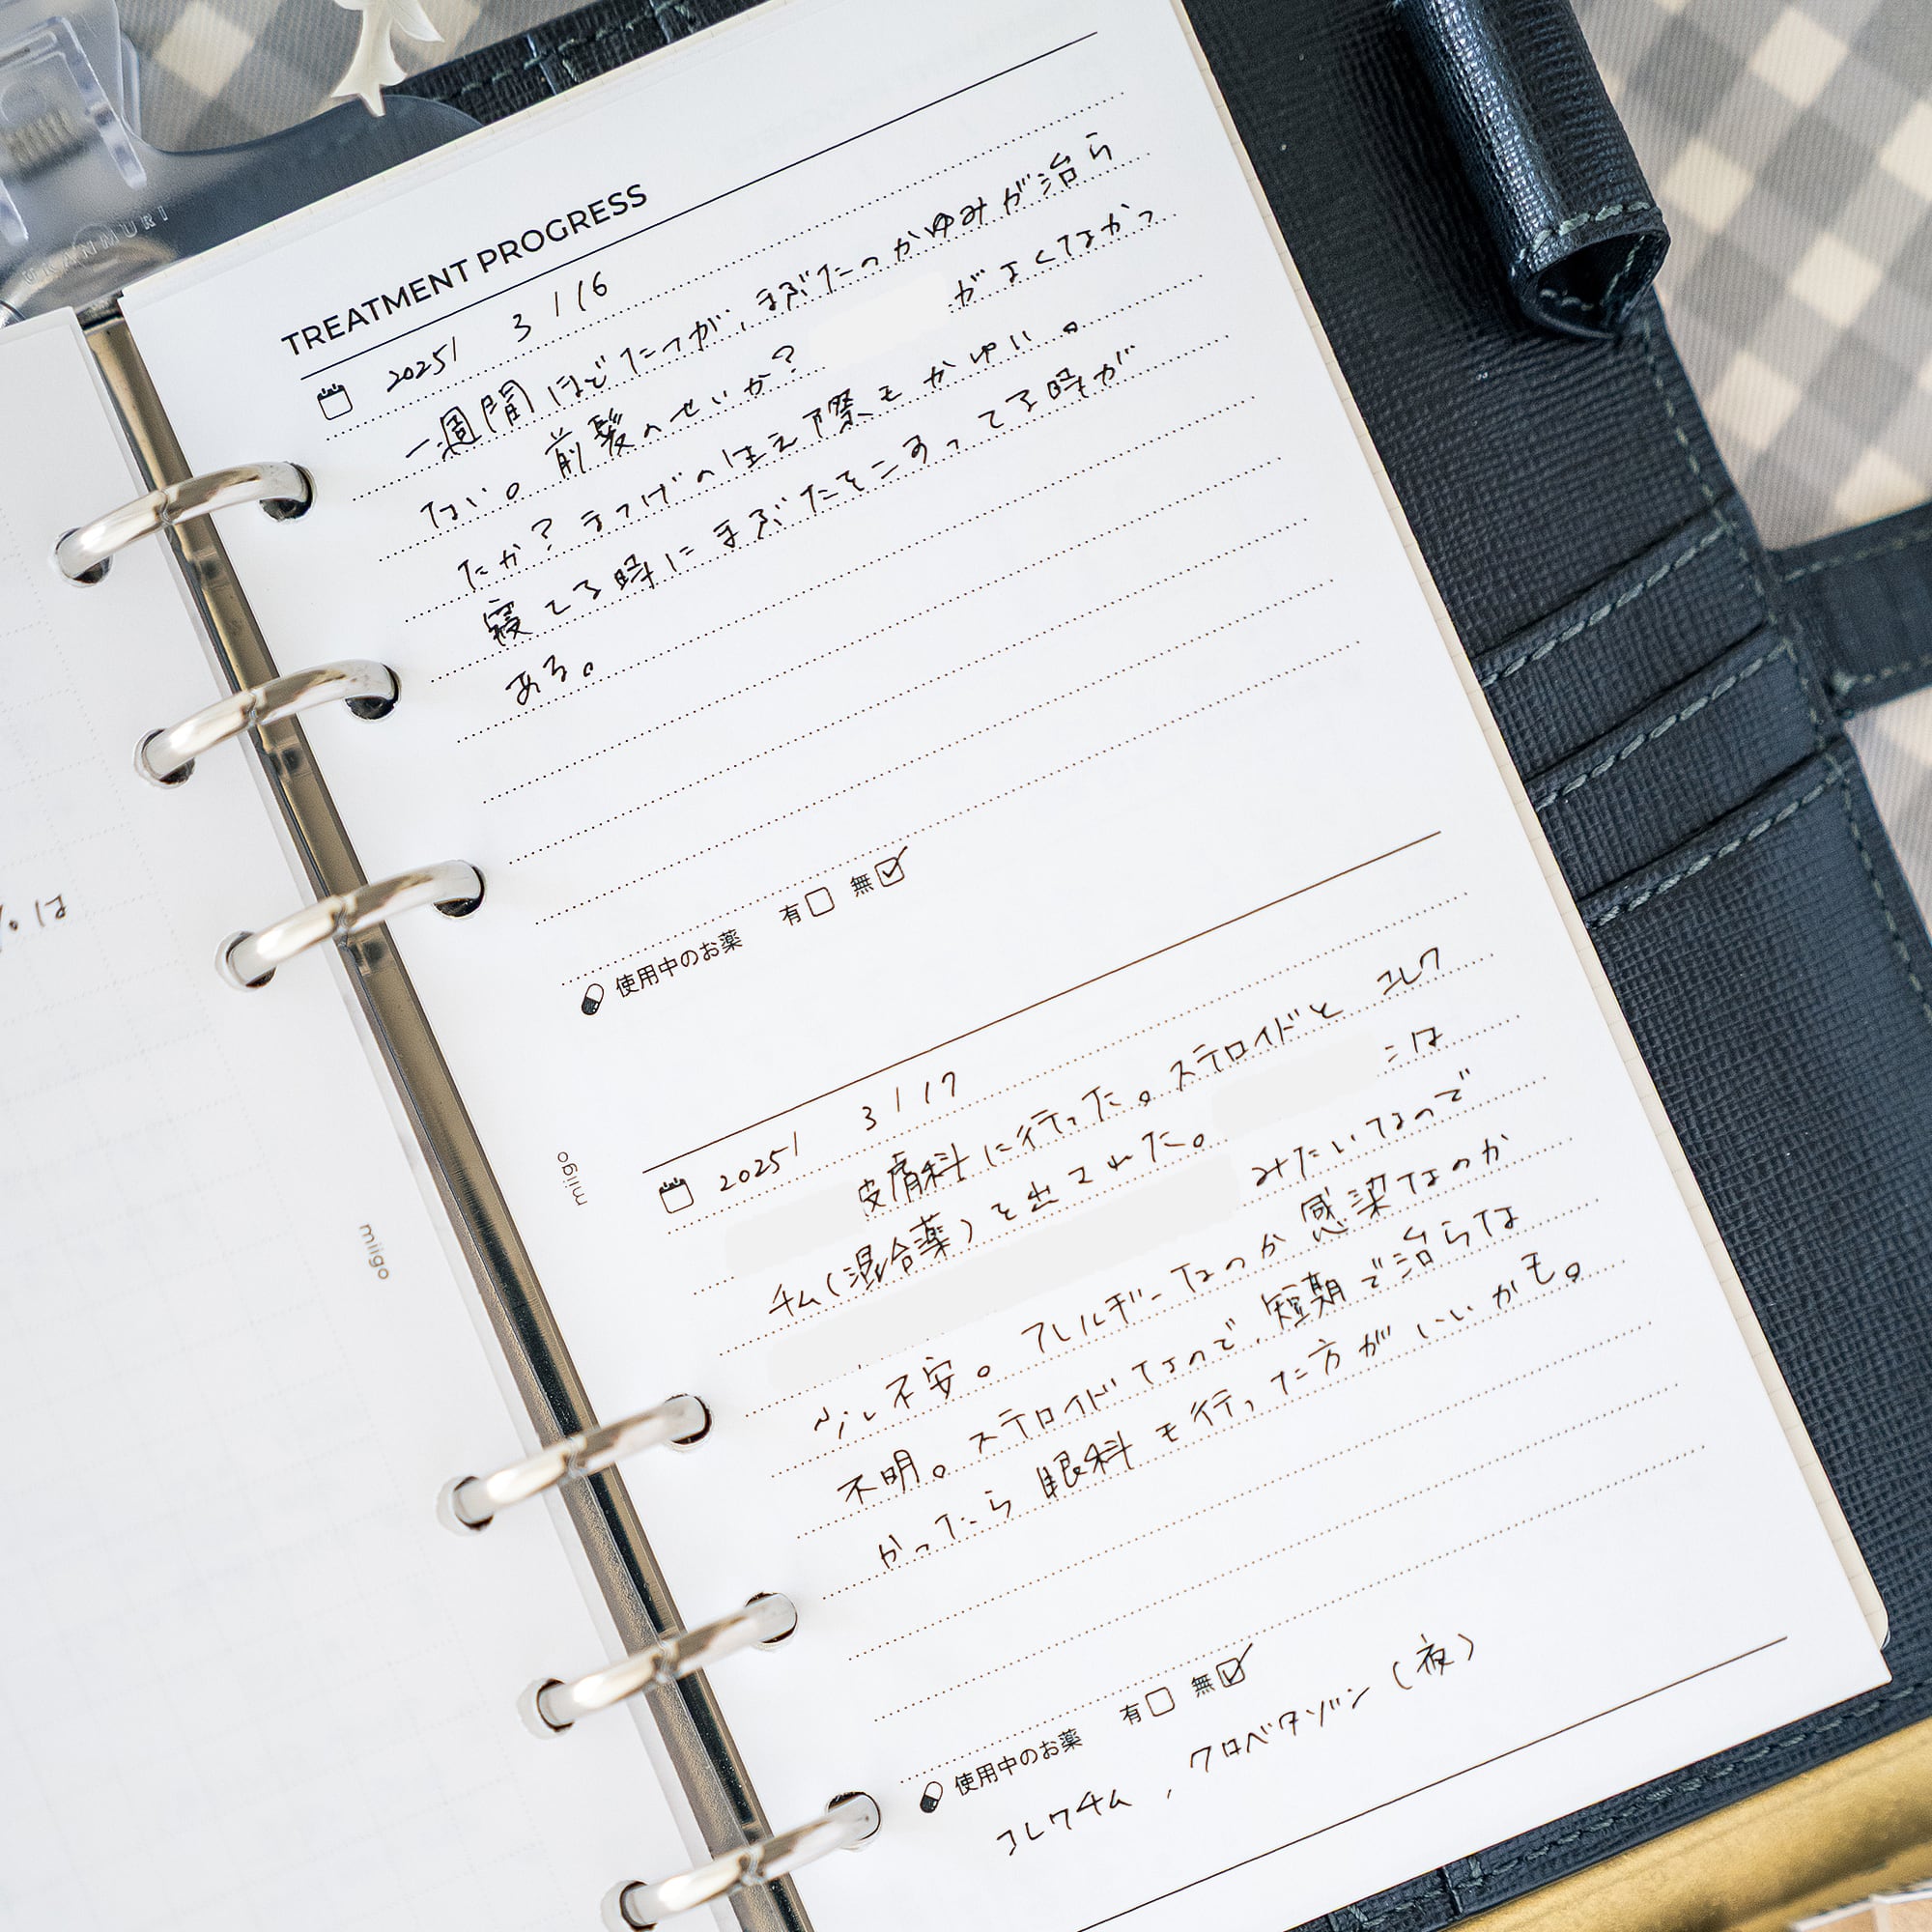 TREATMENT PROGRESS
2025/ 3 / 16
一週間ほどたつが、まぶたのかゆみが治ら
ない。前髪のせいか? がよくなかっ
たか?まつげの生え際もかゆい。
寝てる時にまぶたをこすってる時が
ある。
使用中のお薬 有 無
2025/ 3 / 17
皮膚科に行った。ステロイドと コレク
チム(混合薬)を出された。 こは
みたいなので
少し不安。アレルギーなのか感染なのか
不明。ステロイドなので、短期で治らな
かったら眼科も行った方がいいかも。
使用中のお薬 有 無
コレクチム, クロベタゾン(夜)
miigo
miigo
は
URANNURI